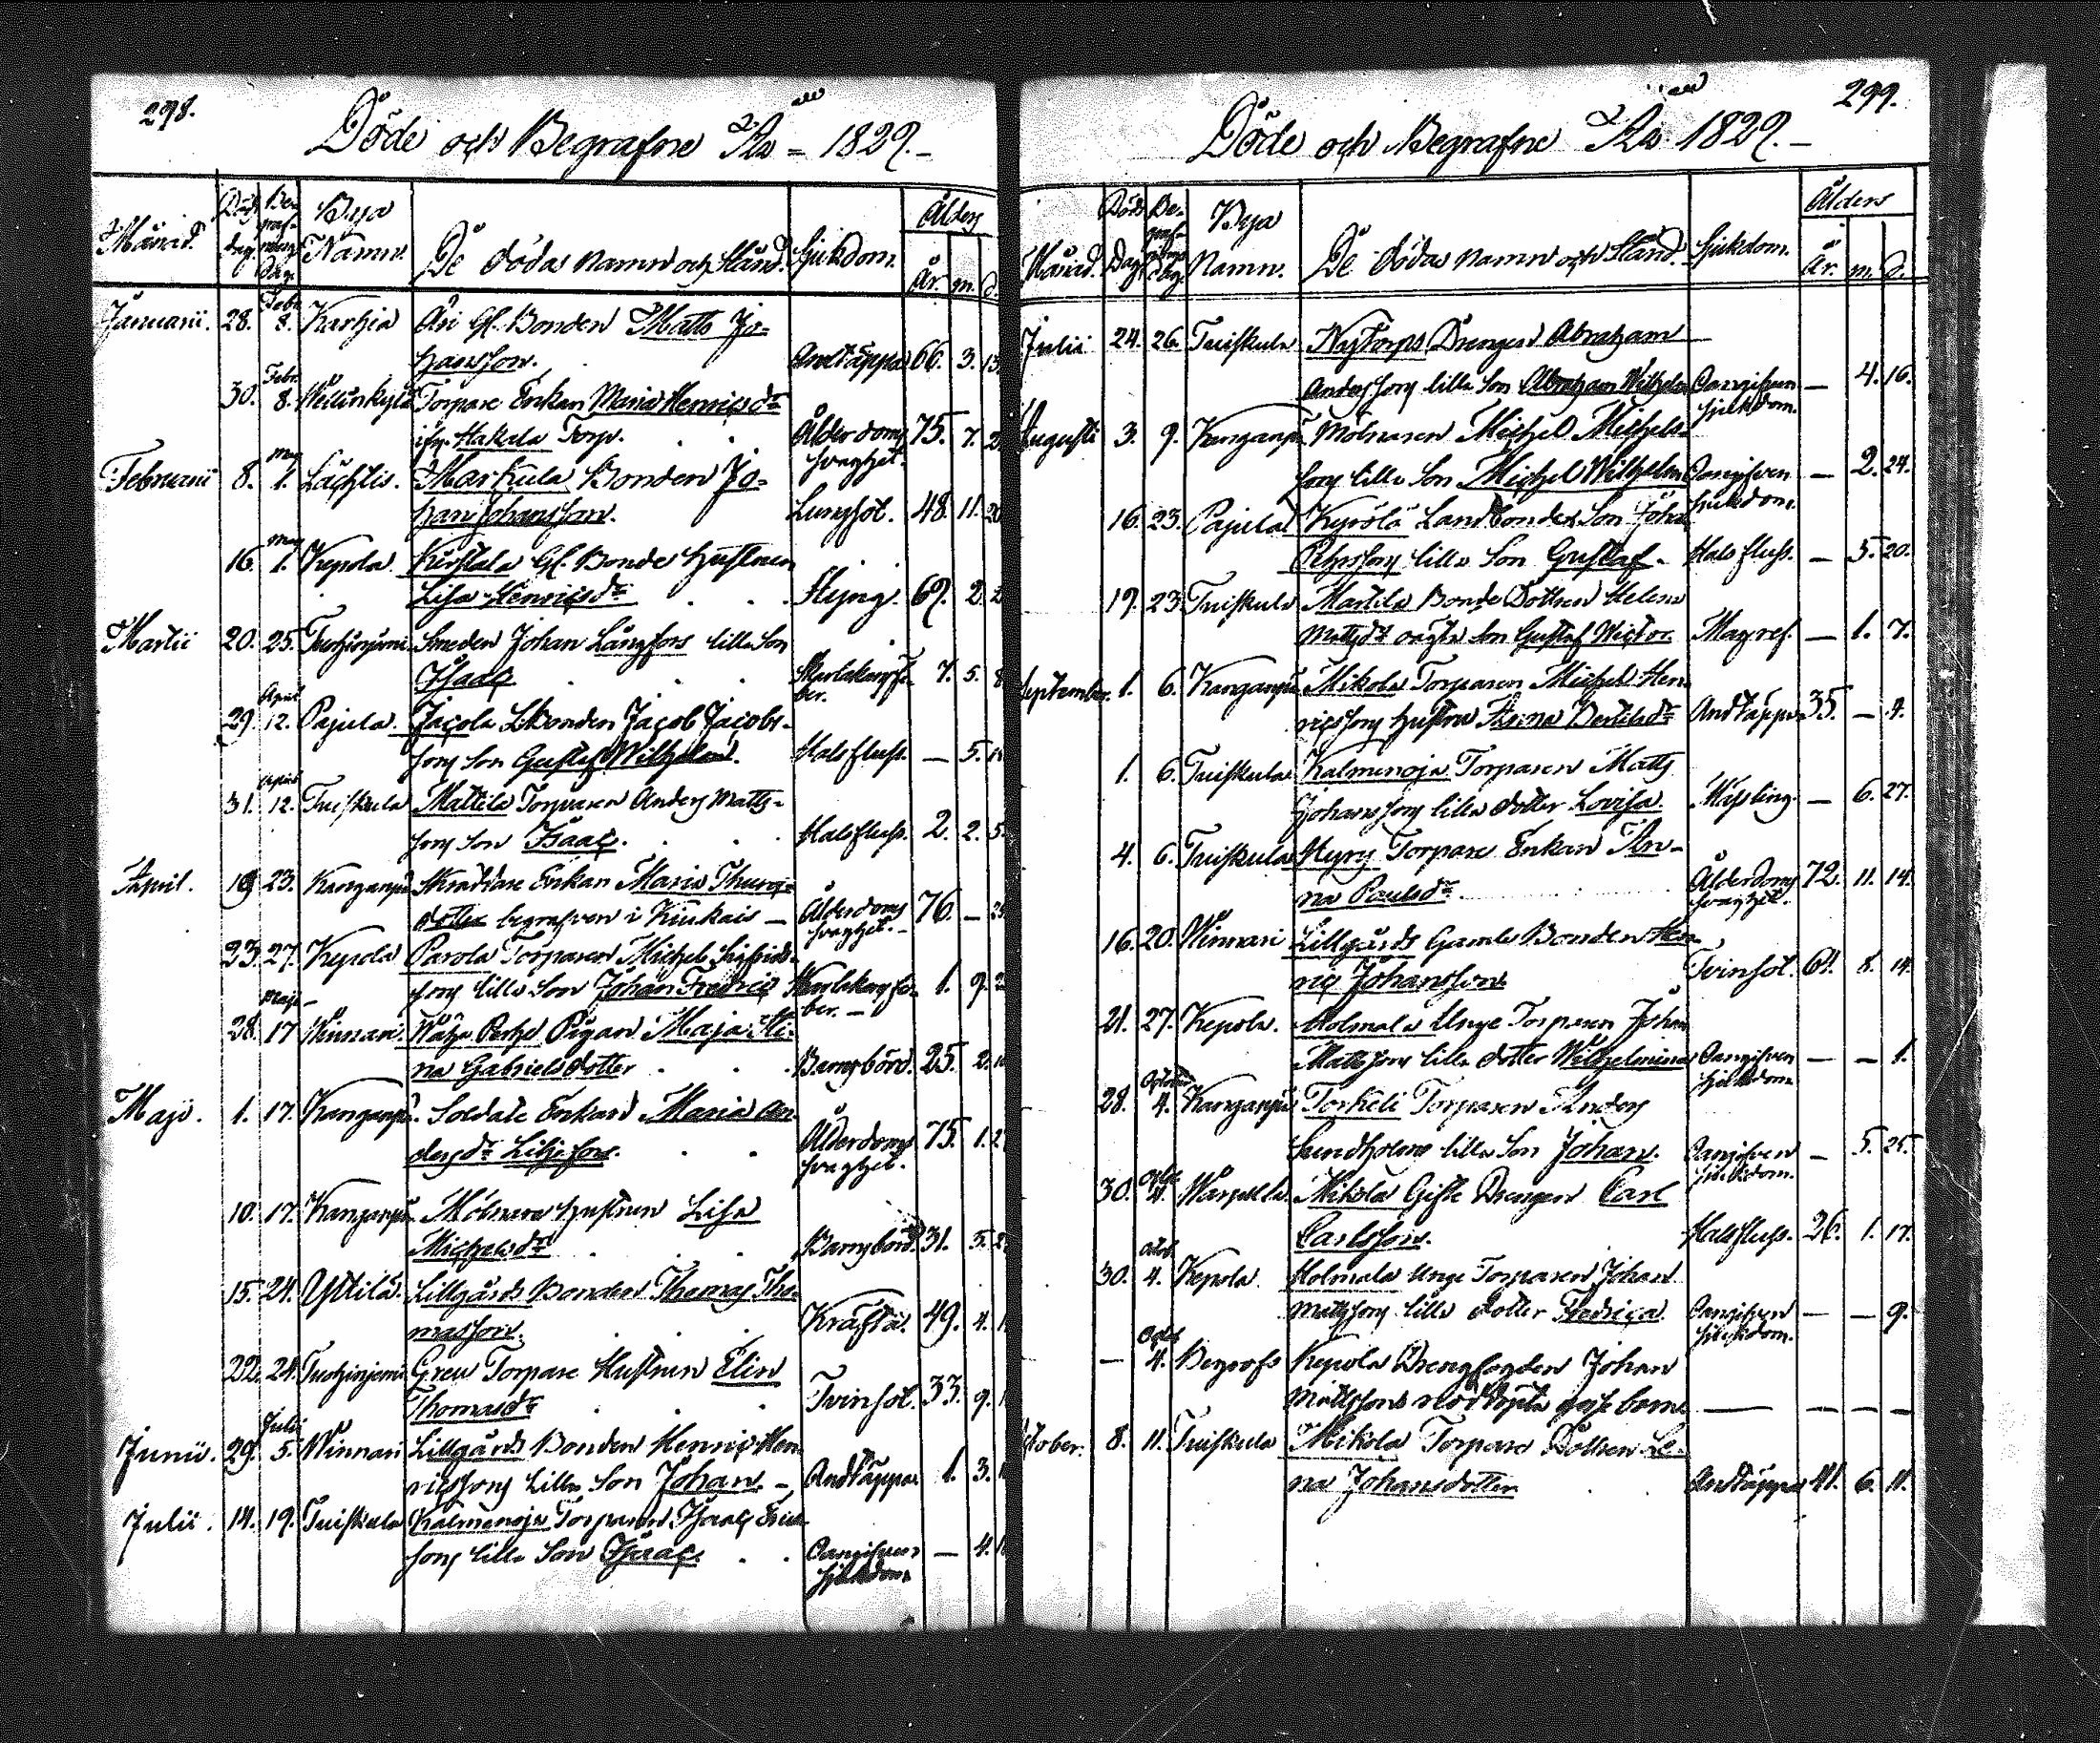 298.
Döde och Begrafne Åro 1829.
Månad. Död dag. Begrafnings Dag. Bya Namn. De dödas namn och Stånd. Sjukdom. Ålders År. m. d.
Januarii. 28. Febr. 8. Karhia Äri Gl. Bonden Matts Jo-
hansson. Andtäppa 66. 3. 13.
30. Febr. 8. Torpare Enkan Maria Henricsdr
ifr. Hakala Torp. Ålderdoms svaghet. 75. 7.
Februarii 8. 1. Lächtis. Markula Bonden Jo-
han Johansson. Lungsot. 48. 11. 20
16. 1. Kepola Kirstala Gl. Bonde hustrun
Lisa Henricsdr Styng. 69. 2.
Martii 20. 25. Smeden Johan Långfors lilla Son
Isaac Skarlakansfeber. 7. 5. 8
29. April 12. Pajula. Jacola LBonden Jacob Jacobs-
sons Son Gustaf Wilhelm. Halsfluss. — 5.
31. April 12. Tuiskula Mattila Torparen Anders Matts-
sons Son Isaac. Halsfluss. 2. 2. 5.
April. 19 23. Kanganpä Skräddare Enkan Maria Thures-
dotter begrafven i Kiukais — Ålderdoms svaghet. 76. —
23. 27. Kepola Parola Torparen Michel Sigfrids-
sons lilla Son Johan Fredric Skarlakansfeber. 1. 9.
28. Maji 17 Winnari. Pigan Maja Sti-
na Gabrielsdotter Barnsbörd. 25. 2.
Maji. 1. 17. Kanganpä. Soldate Enkan Maria An-
dersdr Liljefors. Ålderdoms svaghet. 75. 1.
10. 17. Kanganpä Mölnare hustrun Lisa
Michelsdr Barnsbörd 31. 3.
15. 24. Yttilä. Lillgårds Bonden Thomas Tho-
masson. Kräfta. 49. 4.
22. 24. Greu Torpare Hustrun Elin
Thomasdr Tvinsot. 33. 9.
Junii. 29. Julii 5. Winnari Lillgårds Bonden Henric Hen-
ricssons lilla Son Johan — Andtäppa 1. 3.
Julii. 14. 19. Tuiskula Kalmenoja Torparen Isaac Erics
sons lilla Son Isaac. Oangifven sjukdom. — 4.
299.
Döde och Begrafne Åro 1829.
Månad. Död Dag. Begrafnings dag. Bya Namn. De dödas namn och Stånd. Sjukdom. Ålders År. m. d.
Julii 24. 26. Tuiskula Nytorps Drengen Abraham
Anderssons lilla Son Abraham Wilhelm Oangifven sjukdom. — 4. 16.
Augusti 3. 9. Kanganpä Mölnaren Michel Michels-
sons lilla Son Michel Wilhelm Oangifven sjukdom. — 2. 24.
16. 23. Pajula Kyrölä Landbondes Son Johan
lilla Son Gustaf. Halsfluss. — 5. 20.
19. 23. Tuiskula Martila Bonde Dottren Helena
Mattsdr oägta Son Gustaf Wictor. Magref. — 1. 7.
September. 1. 6. Kanganpä Mikola Torparen Michel Hen-
ricssons hustru Anna Bertilsdr Andtäppa 35. — 4.
1. 6. Tuiskula Kalmenoja Torparen Matts
Johanssons lilla dotter Lovisa. Missling. — 6. 27.
4. 6. Tuiskula Hyry Torpare Enkan An-
na Paulsdr Ålderdoms svaghet. 72. 11. 14.
16. 20. Winnari Lillgårds Gamle Bonden Hen-
ric Johansson Tvinsot. 61. 8. 14.
21. 27. Kepola. Holmala Unge Torparen Johan
Mattssons lilla dotter Wilhelmina Oangifven sjukdom — — 1.
28. October 4. Kanganpä Torkeli Torparen Anders
Lundholms lilla Son Johan. Oangifven sjukdom. — 5. 25.
30. Octob. 4. Mikola Gifte Drengen Carl
Carlsson. Halsfluss. 26. 1. 17.
30. Octob. 4. Kepola Holmala unge Torparen Johan
Mattssons lilla dotter Fredrica. Oangifven sjukdom. — — 9.
— Octob. 4. Begrofs Kepola Drengfogden Johan
Mattssons nöddöpta gosse barn — — — —
October. 8. 11. Tuiskula Mikola Torpare Dottren Le-
na Johansdotter Andtäppa 41. 6. 11.